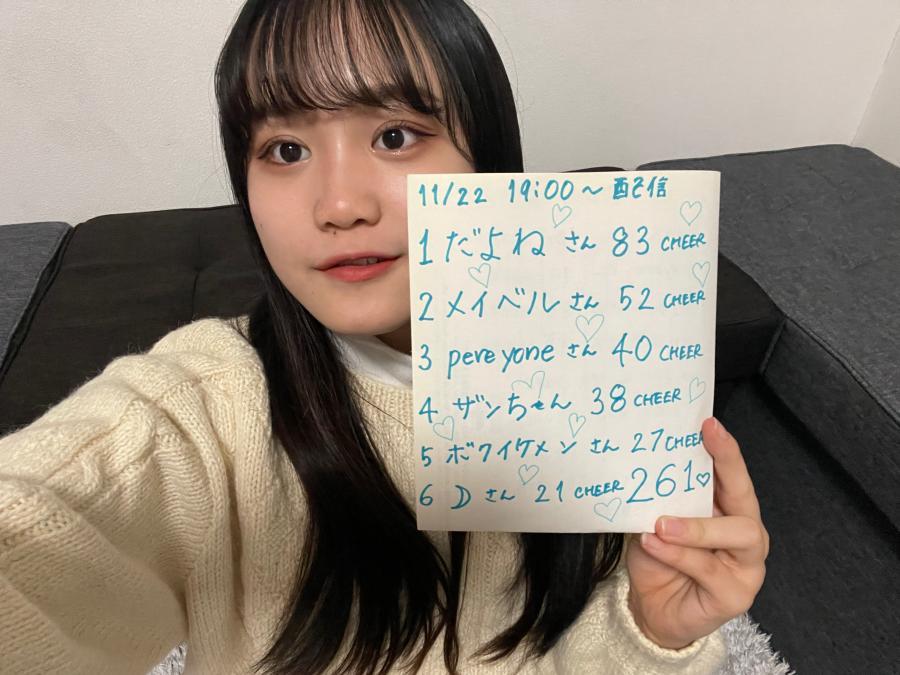 11/22 19:00～ 配信
1 だよね さん 83 CHEER
2 メイベル さん 52 CHEER
3 pereyone さん 40 CHEER
4 ザンちゃん 38 CHEER
5 ボクイケメン さん 27 CHEER
6 D さん 21 CHEER 261♡